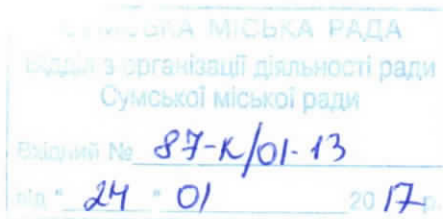 СУМСЬКА МІСЬКА РАДА
Відділ з організації діяльності ради
Сумської міської ради
Вхідний № 87-К/01-13
від " 24 " 01 2017 р.